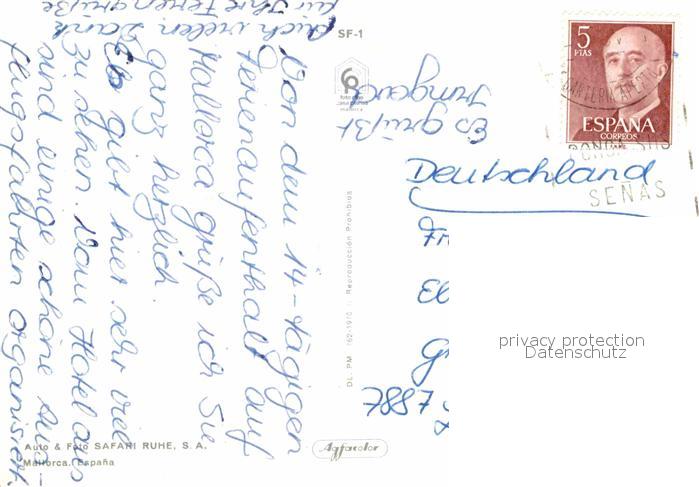 Von dem 14-tägigen
Ferienaufenthalt auf
Mallorca grüße ich Sie
ganz herzlich.
Es gibt hier sehr viel
zu sehen. Vom Hotel aus
sind einige schöne Aus-
flugsfahrten organisiert.
Auch vielen Dank
für Ihre Feriengrüße
Es grüßt
SF-1
5
PTAS
ESPAÑA
CORREOS
SENAS
Deutschland
Fr
El
G
7887
privacy protection
Datenschutz
DL. PM. 162-1970 Reproducción Prohibida
Auto & Foto SAFARI RUHE, S. A.
Mallorca. España
Agfacolor